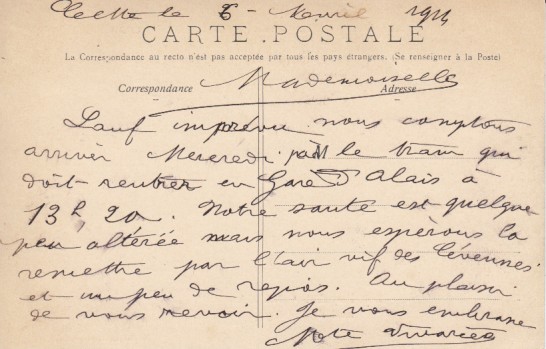 Cette le 6 Avril 1914
CARTE POSTALE
La Correspondance au recto n'est pas acceptée par tous les pays étrangers. (Se renseigner à la Poste)
Correspondance
Adresse
Mademoiselle
Sauf imprévu nous comptons
arriver Mercredi par le train qui
doit rentrer en Gare d'Alais à
13h, 20. Notre santé est quelque
peu altérée mais nous espérons la
remettre par l'air vif des Cévennes
et un peu de repos. Au plaisir
de vous revoir. Je vous embrasse